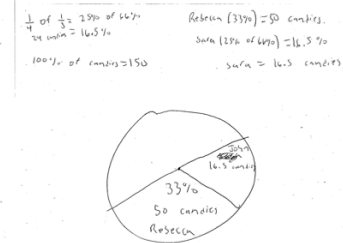 1/4 of 1/3 = 25% of 66%
= 16.5%
100% of candies = 150
Rebecca (33%) = 50 candies.
Sara (25% of 66%) = 16.5%
Sara = 16.5 candies
John
16.5 candies
33%
50 candies
Rebecca